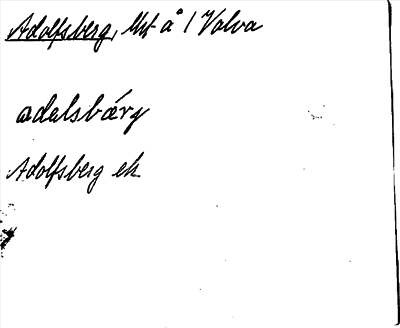 Adolfsberg, lht å 1 Valva
adalsbárg
Adolfsberg ek